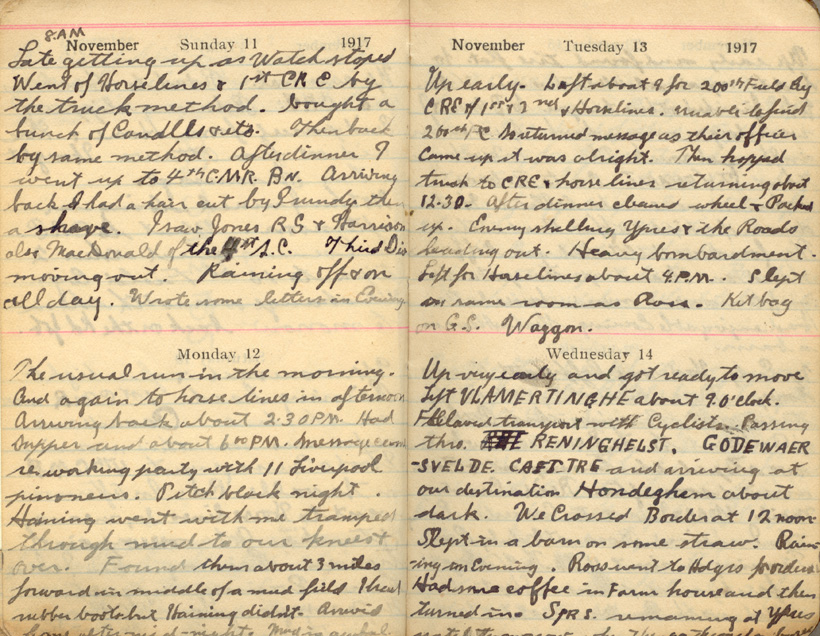 8 AM
November Sunday 11 1917
Late getting up as Watch stoped
Went of Horselines & 1st CRE by
the truck method. bought a
bunch of Candlls & ets. Then back
by same method. After dinner I
went up to 4th C.M.R. Bn. Arriving
back I had a hair cut by then
a shave. I saw Jones RS & Harrison
also MacDonald of the S.C. Third Div
moving out. Raining off & on
all day. Wrote some letters in Evening
Monday 12
The usual run in the morning.
And again to horse lines in afternoon
Arriving back about 2.30 PM. Had
Supper and about 6 00 PM. message came
re. working party with 11 Liverpool
pinoneers. Pitch black night.
Haining went with me tramped
through mud to our knees &
over. Found them about 3 miles
forward in middle of a mud field I had
rubber boots but Haining didn't. Arrived
November Tuesday 13 1917
Up early. Left about 9 for 200th Field Coy
CRE of 1st & 2nd & Horselines. Unable to find
200th FC So returned message as their officer
Came up it was alright. Then hopped
truck to CRE & horse lines returning about
12.30. After dinner cleaned wheel & Packed
up. Enemy shelling Ypres & the Roads
leading out. Heavy bombardment.
Left for Horselines about 4 P.M. Slept
in same room as Ross. Kitbag
on G.S. Waggon.
Wednesday 14
Up very early and got ready to move
Left VLAMERTINGHE about 9.0'clock.
Followed transport with Cyclists. Passing
thro. RENINGHELST. GODEWAER
-SVELDE. CAESTRE and arriving at
our destination Hondegham about
dark. We Crossed Border at 12 noon
Slept in a barn on some straw. Rain-
ing in Evening. Ross went to Hdqrs for orders
Had some coffee in Farm house and then
turned in. SPRS. remaining at Ypres